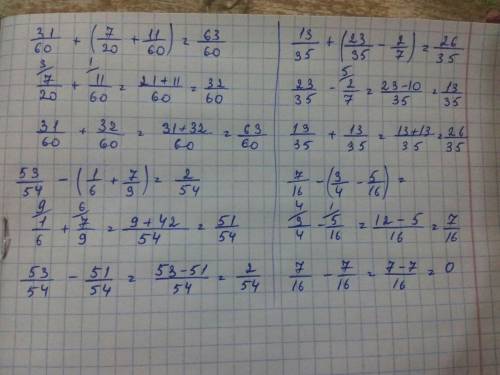 31/60 + (7/20 + 11/60) = 63/60
3/ 1/
7/20 + 11/60 = 21+11/60 = 32/60
31/60 + 32/60 = 31+32/60 = 63/60
53/54 - (1/6 + 7/9) = 2/54
9/ 6/
1/6 + 7/9 = 9+42/54 = 51/54
53/54 - 51/54 = 53-51/54 = 2/54
13/35 + (23/35 - 2/7) = 26/35
5/
23/35 - 2/7 = 23-10/35 = 13/35
13/35 + 13/35 = 13+13/35 = 26/35
7/16 - (3/4 - 5/16) =
4/ 1/
3/4 - 5/16 = 12-5/16 = 7/16
7/16 - 7/16 = 7-7/16 = 0